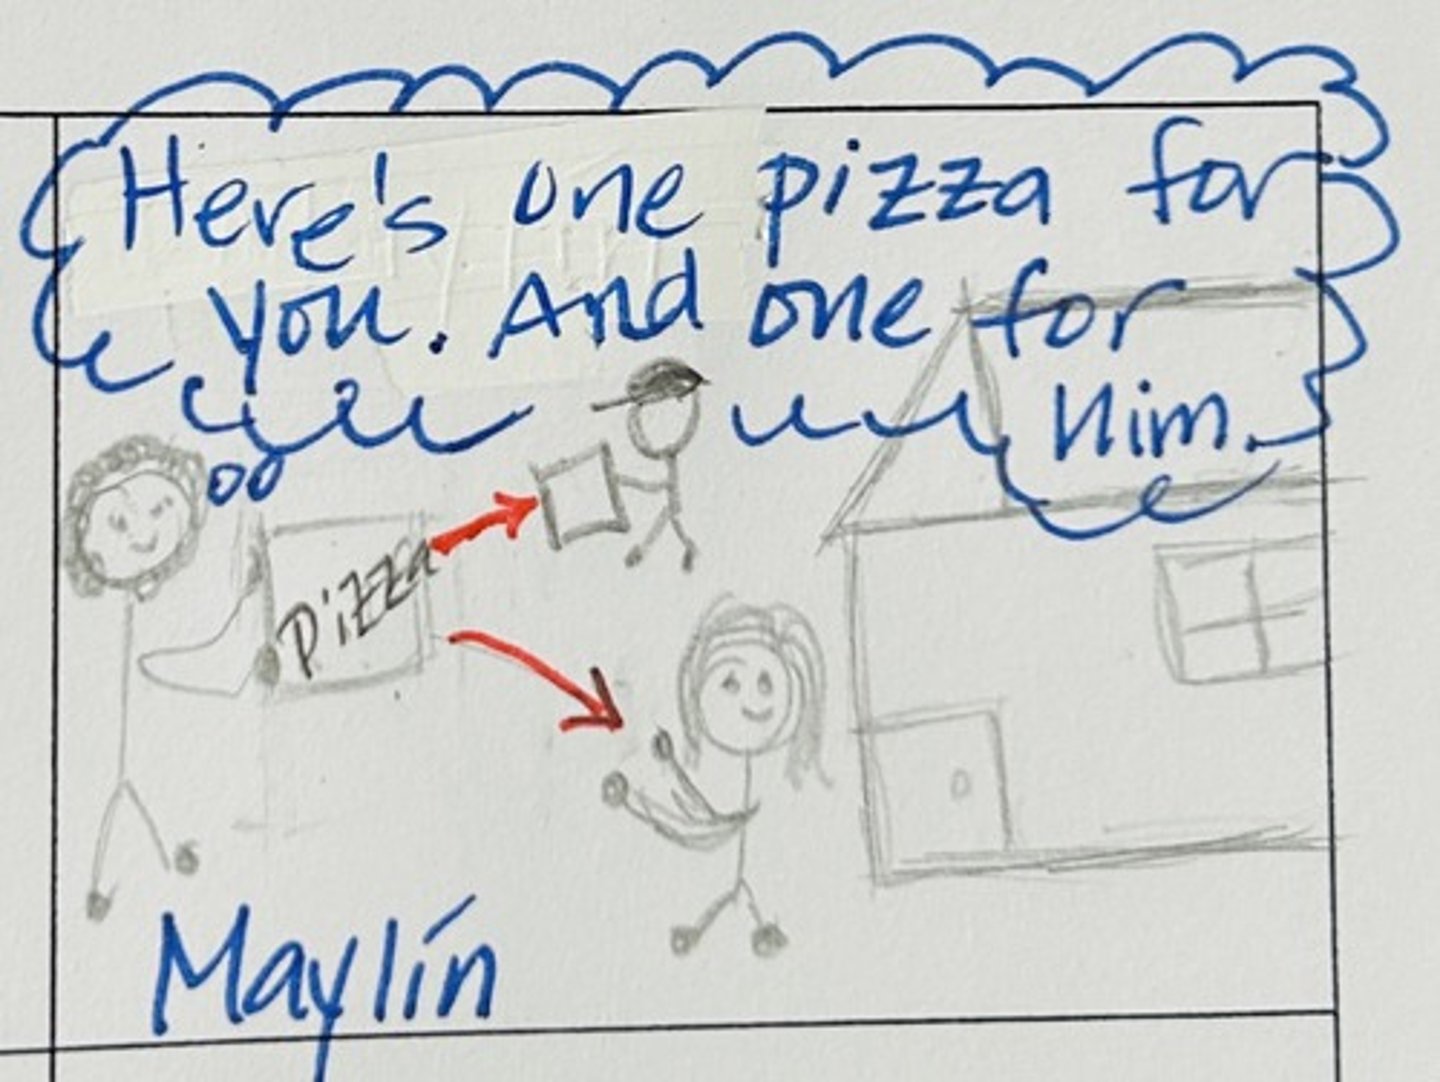 Here's one pizza for
you. And one for
him.
Pizza
Maylín